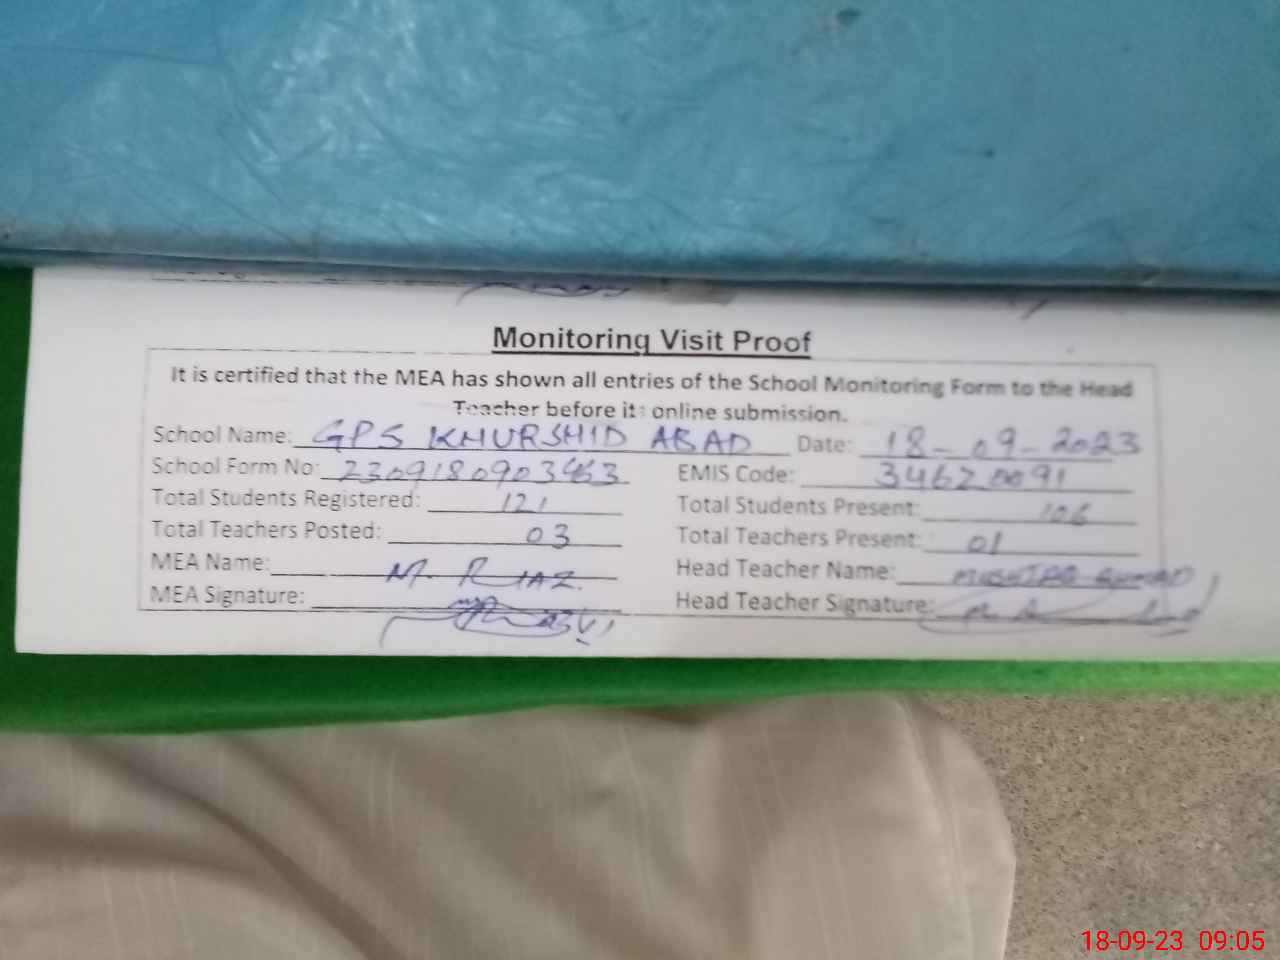 Monitoring Visit Proof
It is certified that the MEA has shown all entries of the School Monitoring Form to the Head
Teacher before its online submission.
School Name: GPS KHURSHID ABAD Date: 18-09-2023
School Form No: 2309180903463 EMIS Code: 34620091
Total Students Registered: 121 Total Students Present: 106
Total Teachers Posted: 03 Total Teachers Present: 01
MEA Name: M. RIAZ Head Teacher Name: MUSHTAQ AHMAD
MEA Signature: Head Teacher Signature:
18-09-23 09:05